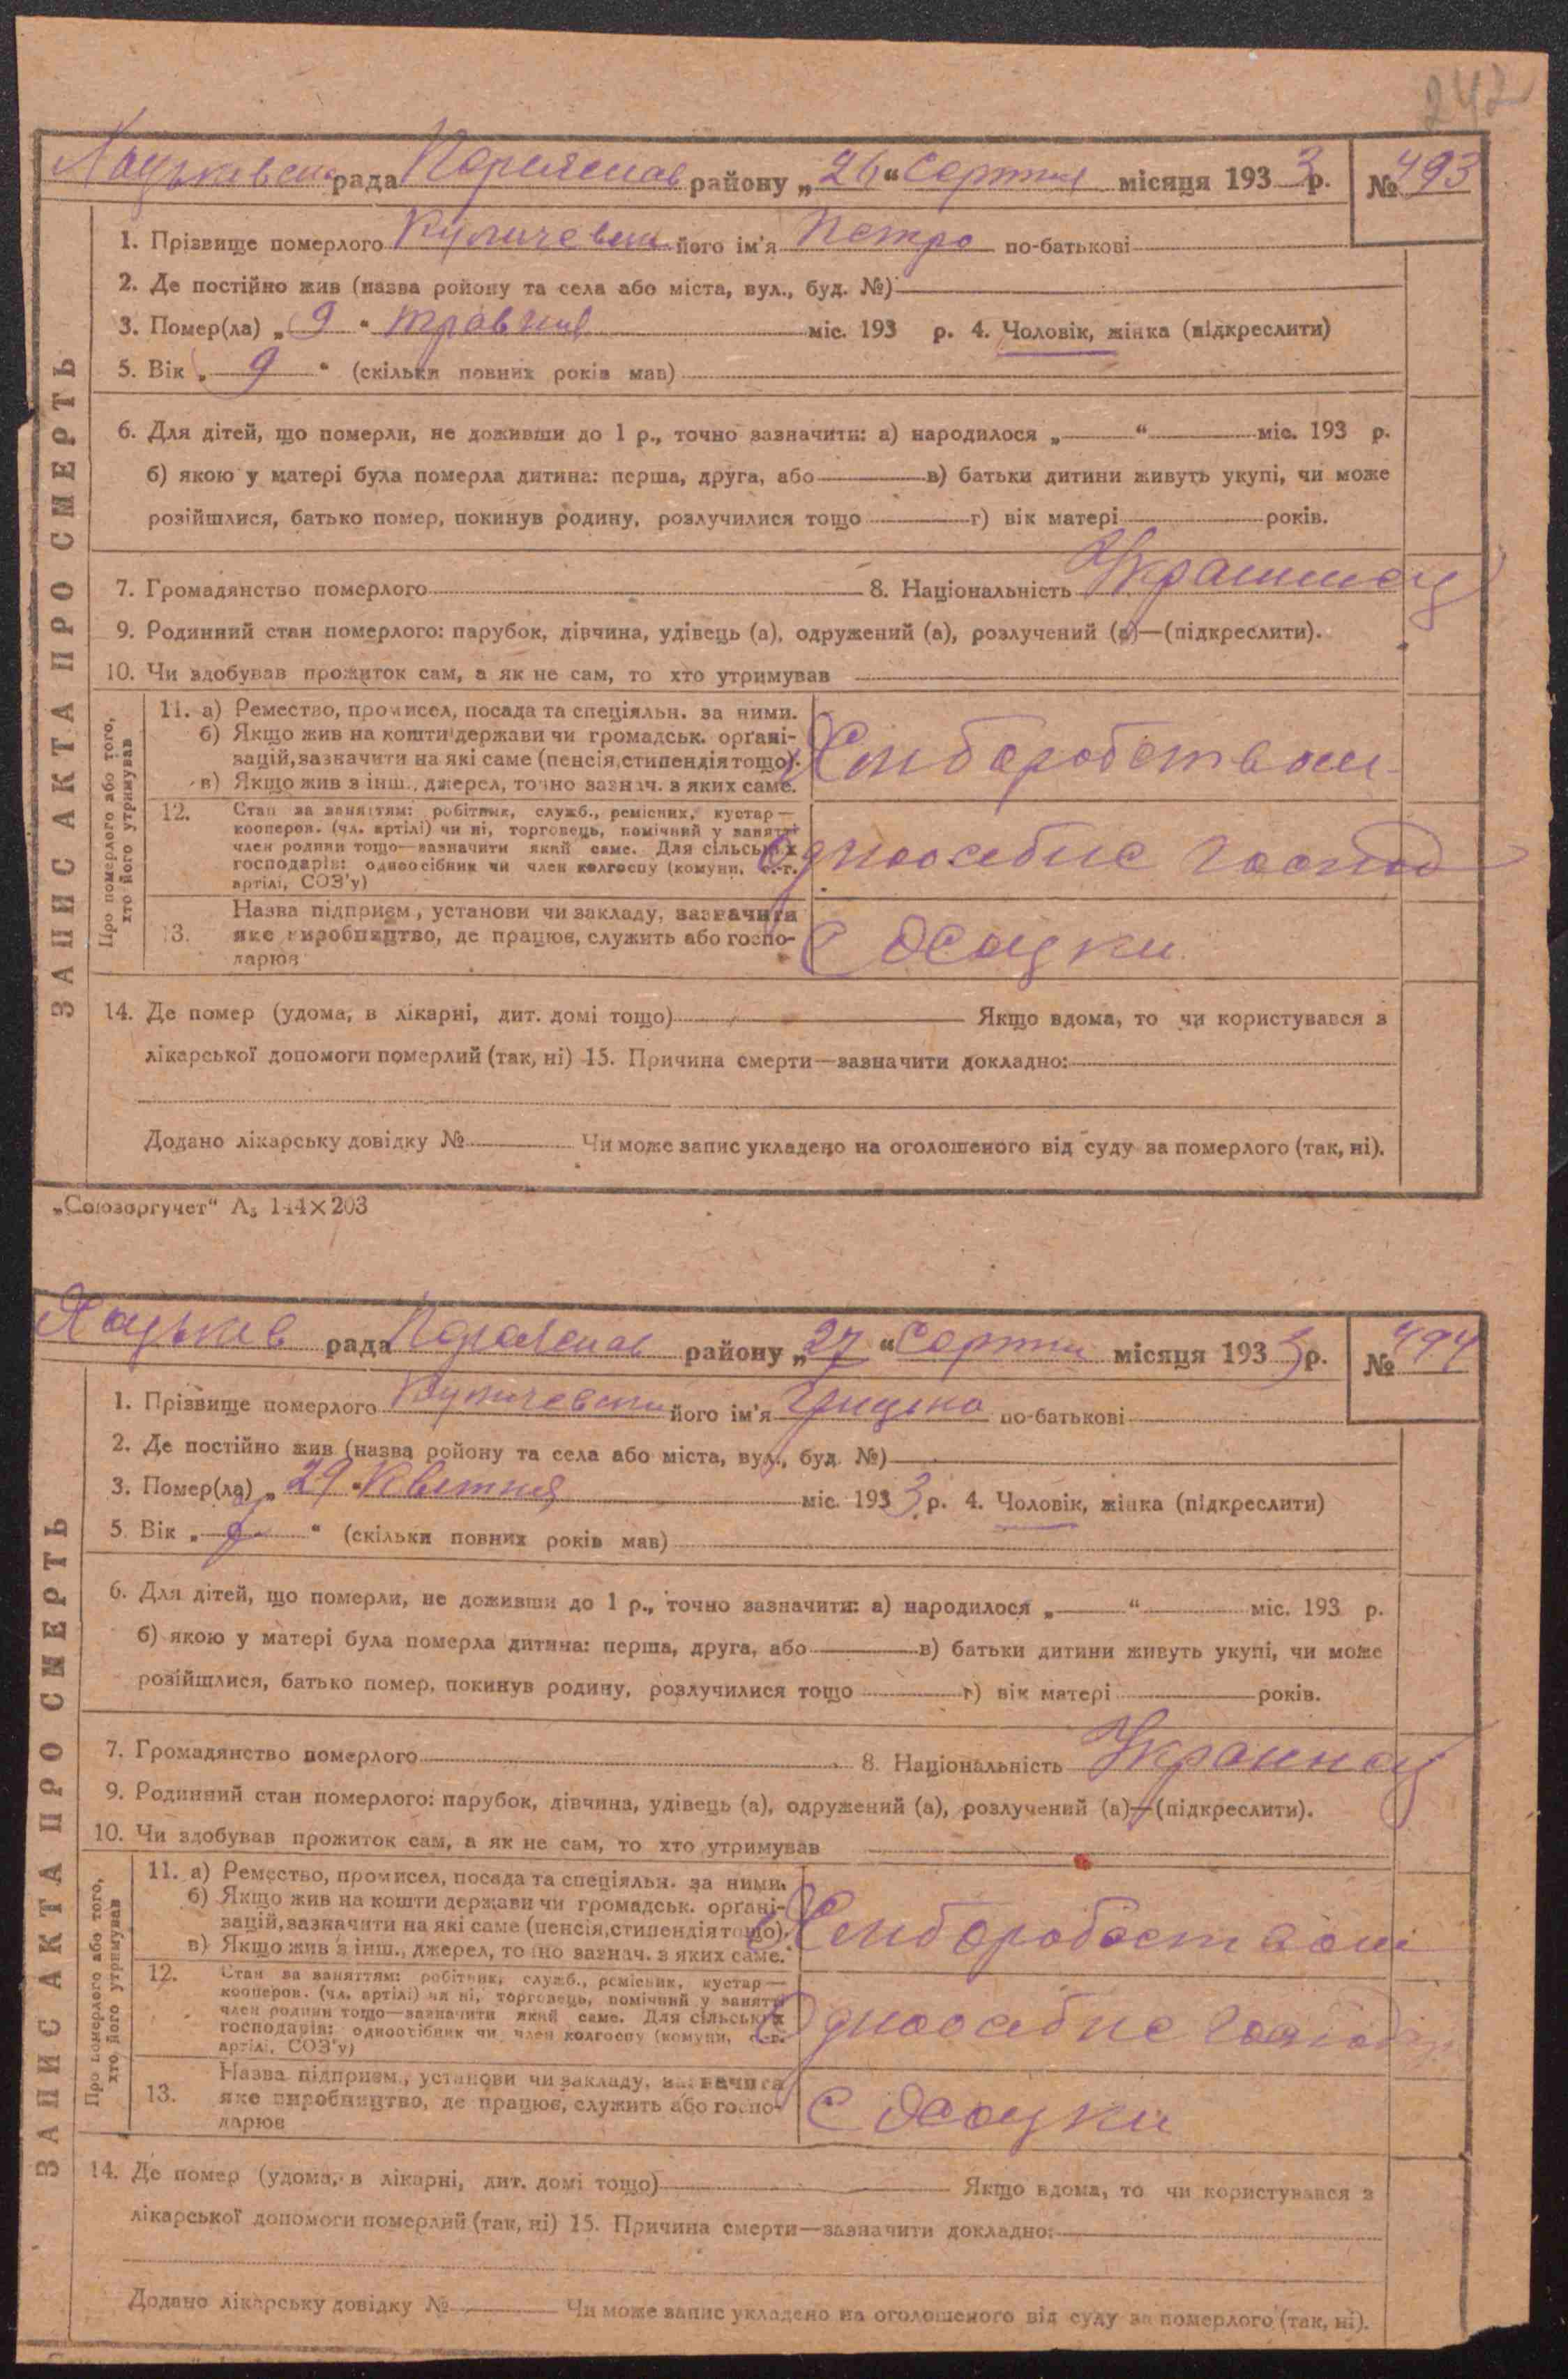 242
Хоцьківська рада Переяслав району „26“ Серпня місяця 1933 р. № 493
ЗАПИС АКТА ПРО СМЕРТЬ
1. Прізвище померлого його ім'я Петро по-батькові
2. Де постійно жив (назва ройону та села або міста, вул., буд. №)
3. Помер(ла) „9“ травня міс. 193 р. 4. Чоловік, жінка (підкреслити)
5. Вік „9“ (скільки повних років мав)
6. Для дітей, що померли, не доживши до 1 р., точно зазначити: а) народилося „ “ міс. 193 р.
б) якою у матері була померла дитина: перша, друга, або в) батьки дитини живуть укупі, чи може
розійшлися, батько помер, покинув родину, розлучилися тощо г) вік матері років.
7. Громадянство померлого 8. Національність Украинец
9. Родинний стан померлого: парубок, дівчина, удівець (а), одружений (а), розлучений (а)—(підкреслити).
10. Чи здобував прожиток сам, а як не сам, то хто утримував
Про померлого або того,
хто його утримував
11. а) Ремество, промисел, посада та спеціяльн. за ними.
б) Якщо жив на кошти держави чи громадськ. орґані-
зацій, зазначити на які саме (пенсія, стипендія тощо).
в) Якщо жив з інш., джерел, точно зазнач. з яких саме.
12. Стан за заняттям: робітник, служб., ремісник, кустар—
кооперов. (чл. артілі) чи ні, торговець, помічний у занятті
член родини тощо—зазначити який саме. Для сільських
господарів: одноосібник чи член колгоспу (комуни, с.-г.
артілі, СОЗ'у)
Одноосебне господ
13. Назва підприєм., установи чи закладу, зазначити
яке виробництво, де працює, служить або госпо-
дарює
С Хоцки
14. Де помер (удома, в лікарні, дит. домі тощо) Якщо вдома, то чи користувався з
лікарської допомоги померлий (так, ні) 15. Причина смерти—зазначити докладно:
Додано лікарську довідку № Чи може запис укладено на оголошеного від суду за померлого (так, ні).
„Союзоргучет“ А₅ 144×203
Хоцьків рада Переяслав району „27“ Серпня місяця 1933 р. № 494
ЗАПИС АКТА ПРО СМЕРТЬ
1. Прізвище померлого його ім'я Грицько по-батькові
2. Де постійно жив (назва ройону та села або міста, вул., буд. №)
3. Помер(ла) „29“ Квітня міс. 1933 р. 4. Чоловік, жінка (підкреслити)
5. Вік „ “ (скільки повних років мав)
6. Для дітей, що померли, не доживши до 1 р., точно зазначити: а) народилося „ “ міс. 193 р.
б) якою у матері була померла дитина: перша, друга, або в) батьки дитини живуть укупі, чи може
розійшлися, батько помер, покинув родину, розлучилися тощо г) вік матері років.
7. Громадянство померлого 8. Національність Украинец
9. Родинний стан померлого: парубок, дівчина, удівець (а), одружений (а), розлучений (а)—(підкреслити).
10. Чи здобував прожиток сам, а як не сам, то хто утримував
Про померлого або того,
хто його утримував
11. а) Ремество, промисел, посада та спеціяльн. за ними.
б) Якщо жив на кошти держави чи громадськ. орґані-
зацій, зазначити на які саме (пенсія, стипендія тощо).
в) Якщо жив з інш., джерел, точно зазнач. з яких саме.
12. Стан за заняттям: робітник, служб., ремісник, кустар—
кооперов. (чл. артілі) чи ні, торговець, помічний у занятті
член родини тощо—зазначити який саме. Для сільських
господарів: одноосібник чи член колгоспу (комуни, с.-г.
артілі, СОЗ'у)
Одноосебне господар
13. Назва підприєм., установи чи закладу, зазначити
яке виробництво, де працює, служить або госпо-
дарює
С Хоцки
14. Де помер (удома, в лікарні, дит. домі тощо) Якщо вдома, то чи користувався з
лікарської допомоги померлий (так, ні) 15. Причина смерти—зазначити докладно:
Додано лікарську довідку № Чи може запис укладено на оголошеного від суду за померлого (так, ні).